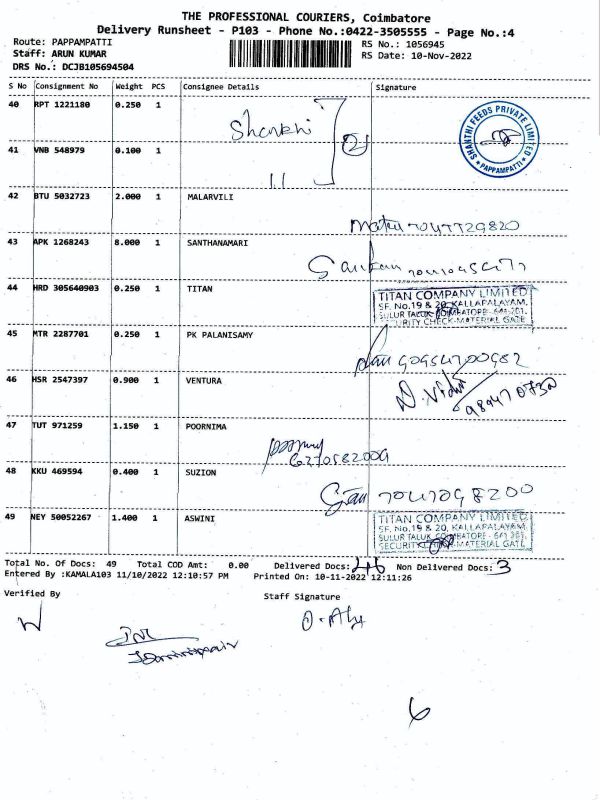 THE PROFESSIONAL COURIERS, Coimbatore
Delivery Runsheet - P103 - Phone No.:0422-3505555 - Page No.:4
Route: PAPPAMPATTI
Staff: ARUN KUMAR
DRS No.: DCJB105694504
RS No.: 1056945
RS Date: 10-Nov-2022
S No Consignment No Weight PCS Consignee Details Signature
40 RPT 1221180 0.250 1
SHANTHI FEEDS PRIVATE LIMITED
* PAPPAMPATTI *
41 VNB 548979 0.100 1
42 BTU 5032723 2.000 1 MALARVILI
43 APK 1268243 8.000 1 SANTHANAMARI
44 HRD 305640903 0.250 1 TITAN
TITAN COMPANY LIMITED
SF. No.19 & 20, KALLAPALAYAM,
SULUR TALUK, COIMBATORE- 641 201.
SECURITY CHECK-MATERIAL GATE
45 MTR 2287701 0.250 1 PK PALANISAMY
46 HSR 2547397 0.900 1 VENTURA
47 TUT 971259 1.150 1 POORNIMA
48 KKU 469594 0.400 1 SUZION
49 NEY 50052267 1.400 1 ASWINI
TITAN COMPANY LIMITED
SF. No.19 & 20, KALLAPALAYAM,
SULUR TALUK, COIMBATORE- 641 201.
SECURITY CHECK-MATERIAL GATE
Total No. Of Docs: 49 Total COD Amt: 0.00 Delivered Docs: 46 Non Delivered Docs: 3
Entered By :KAMALA103 11/10/2022 12:10:57 PM Printed On: 10-11-2022 12:11:26
Verified By Staff Signature
6